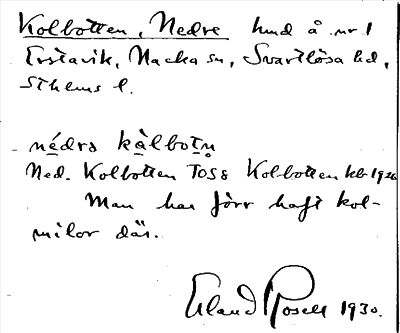 Kolbotten, Nedre hmd å nr 1
Erstavik, Nacka sn, Svartlösa hd,
Sthlms l.
nédrə kålbotn̥
Ned. Kolbotten TOSS Kolbotten kb 1926
Man har förr haft kol-
milor där.
Erland Rosell 1930.